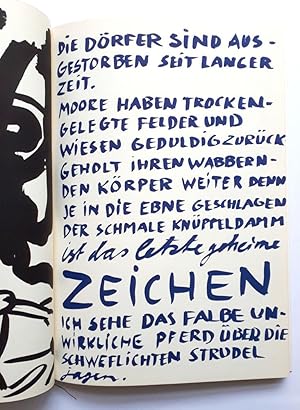 DIE DÖRFER SIND AUS-
GESTORBEN SEIT LANGER
ZEIT.
MOORE HABEN TROCKEN-
GELEGTE FELDER UND
WIESEN GEDULDIG ZURÜCK
GEHOLT IHREN WABBERN-
DEN KÖRPER WEITER DENN
JE IN DIE EBNE GESCHLAGEN
DER SCHMALE KNÜPPELDAMM
ist das letzte geheime
ZEICHEN
ICH SEHE DAS FALBE UN-
WIRKLICHE PFERD ÜBER DIE
SCHWEFLICHTEN STRUDEL
jagen.